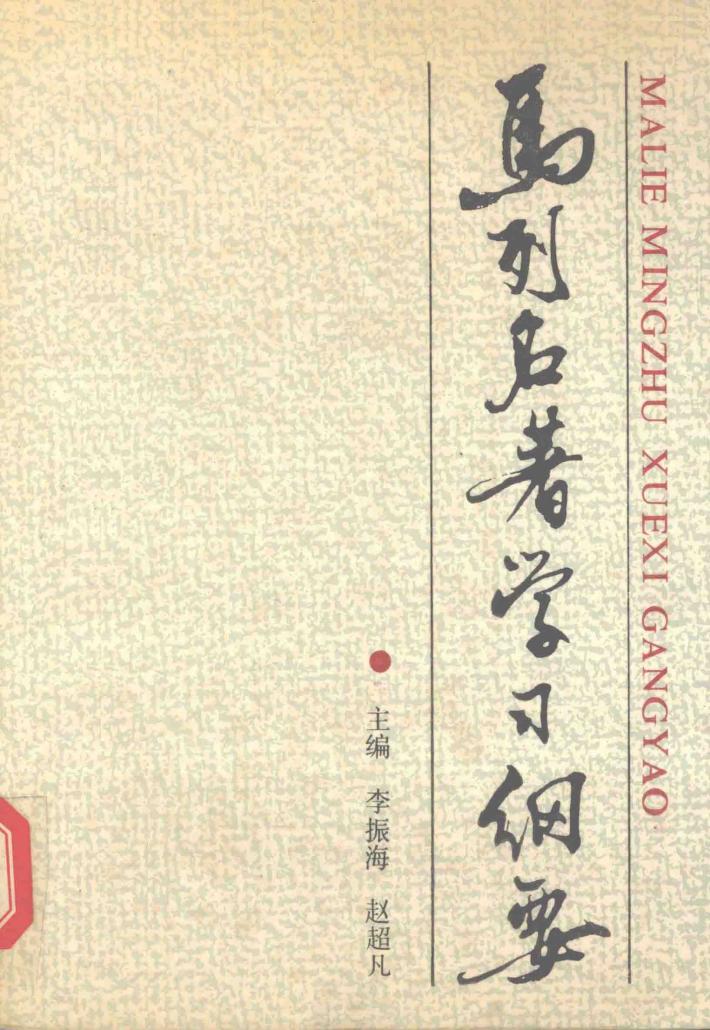 MALIE MINGZHU XUEXI GANGYAO
馬列名著学习纲要
主编 李振海 赵超凡